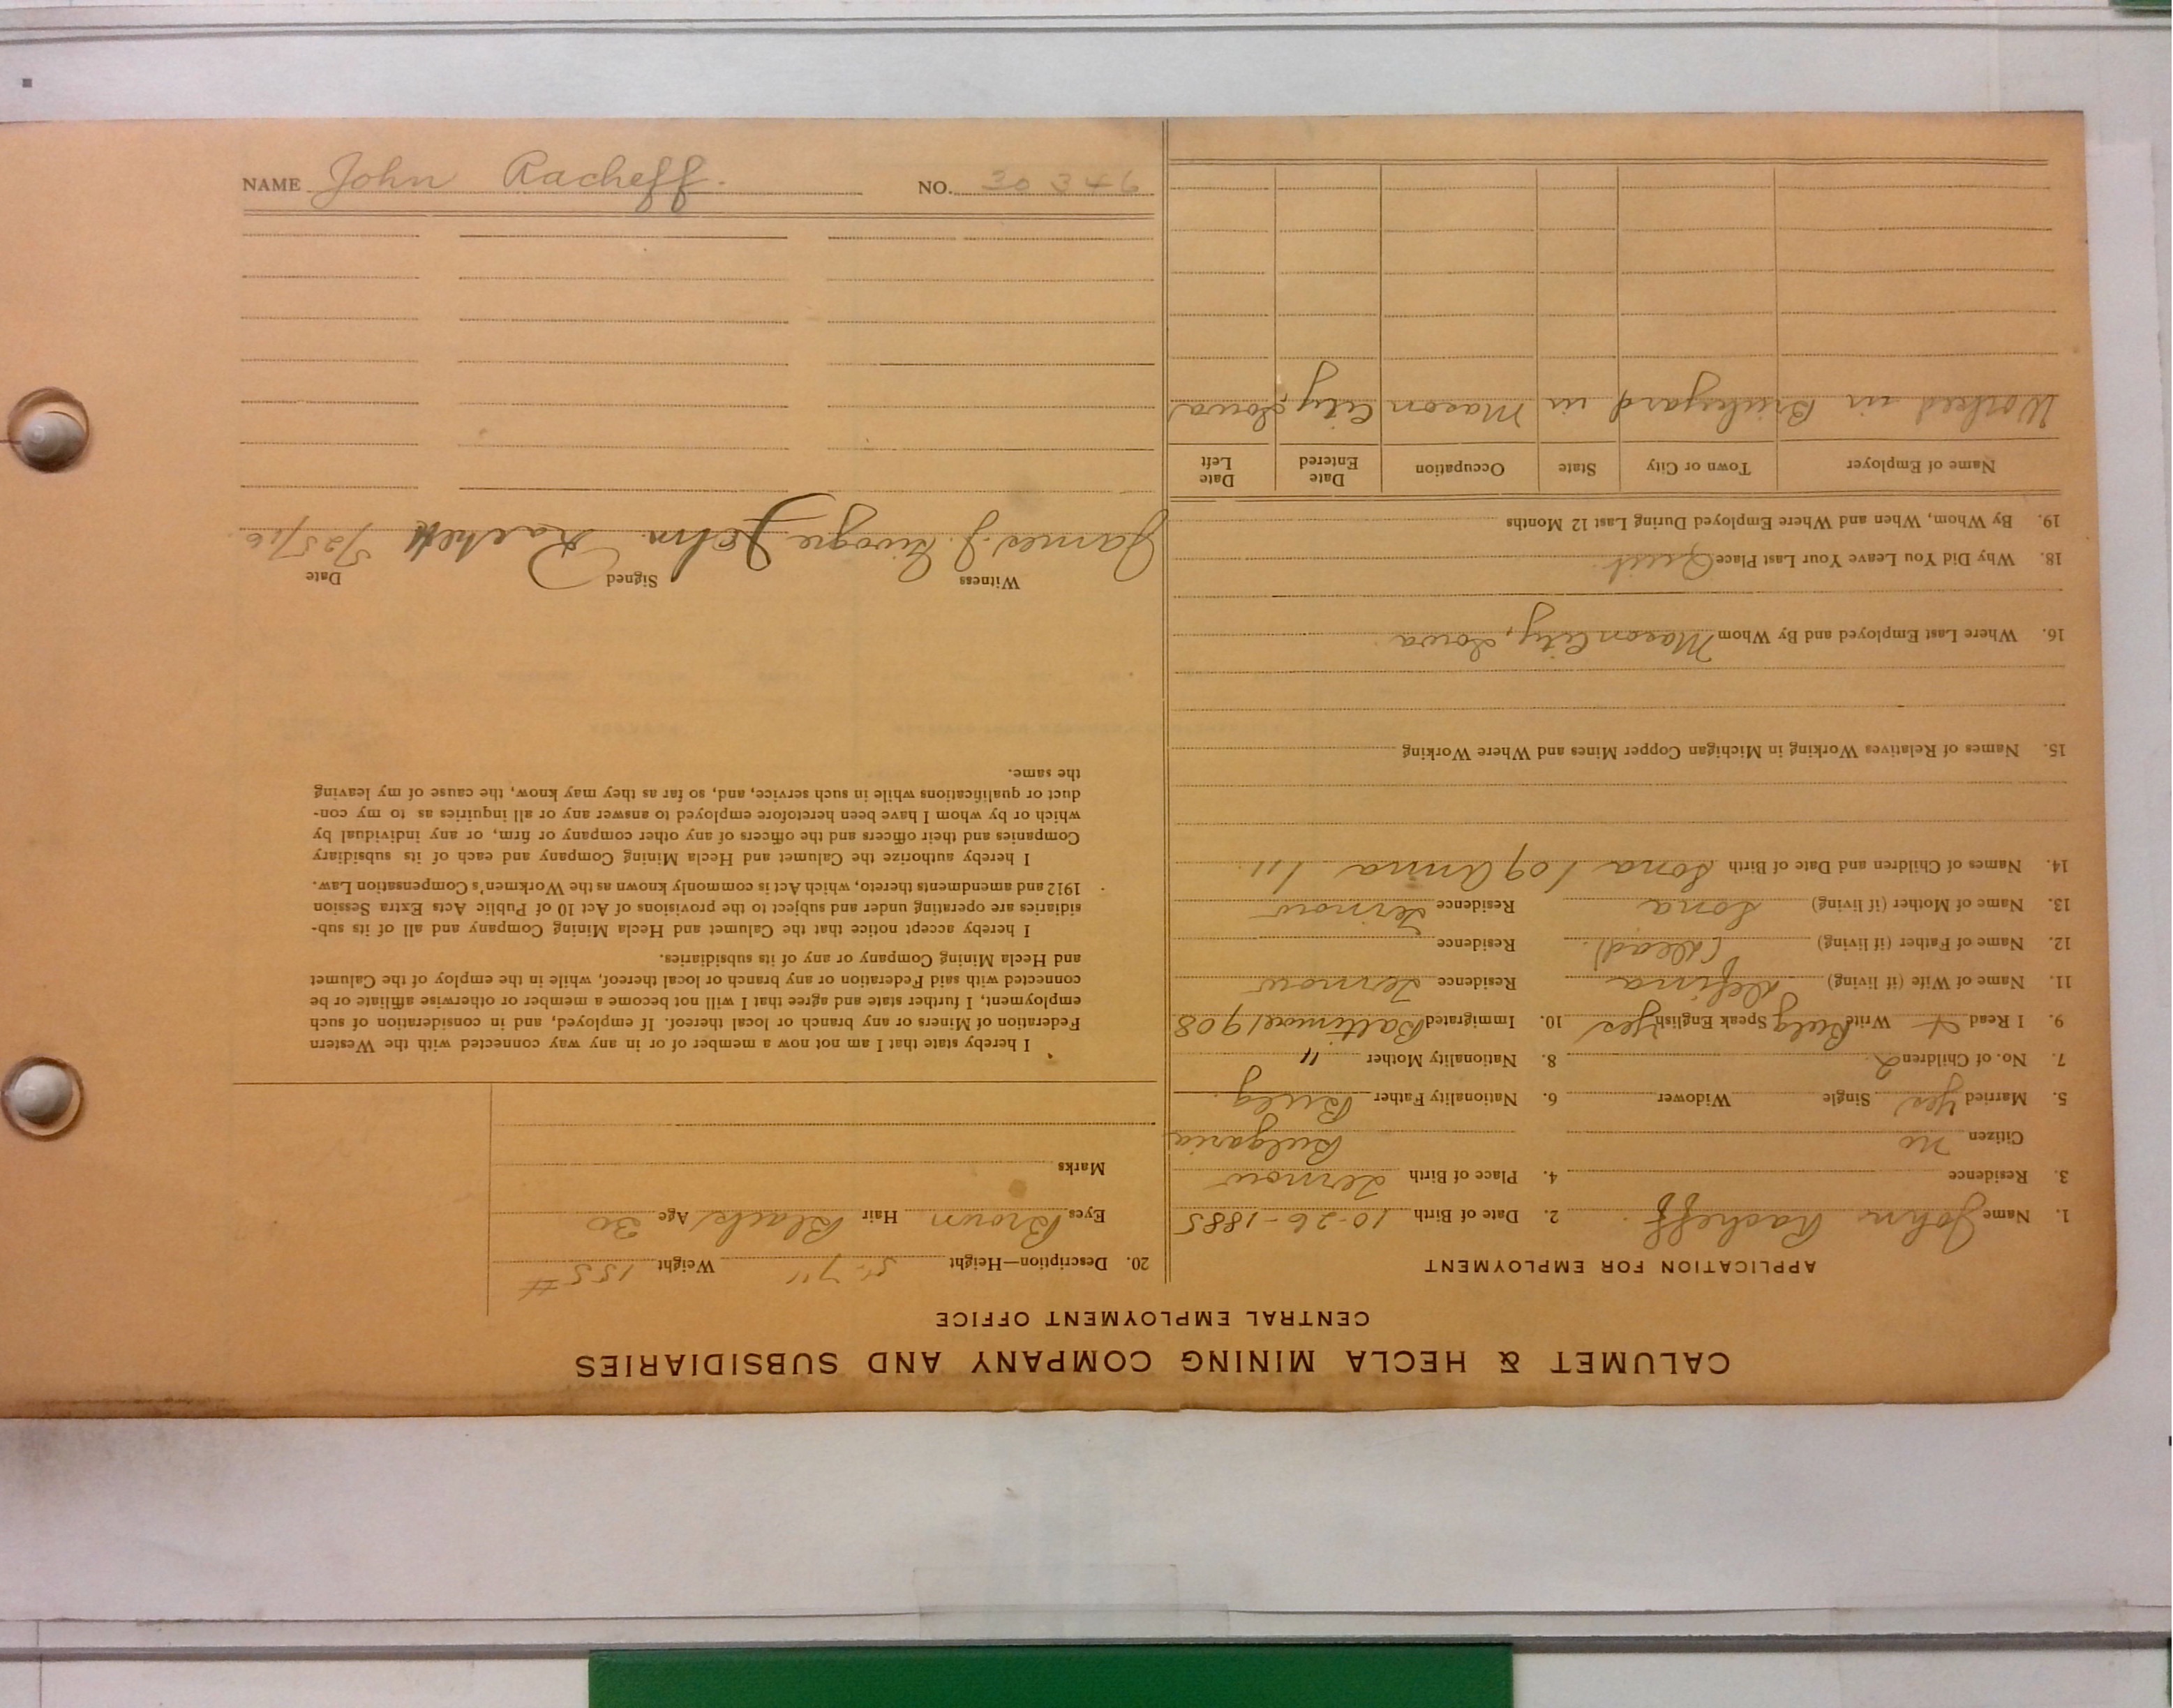 CALUMET & HECLA MINING COMPANY AND SUBSIDIARIES
CENTRAL EMPLOYMENT OFFICE
APPLICATION FOR EMPLOYMENT
1. Name John Racheff 2. Date of Birth 10-26-1885
3. Residence 4. Place of Birth Ternow
Citizen no Bulgaria
5. Married Yes Single Widower 6. Nationality Father Bulg
7. No. of Children 2 8. Nationality Mother "
9. I Read + Write Bulg Speak English Yes 10. Immigrated Baltimore 1908
11. Name of Wife (if living) Defina Residence Ternow
12. Name of Father (if living) (Dead) Residence
13. Name of Mother (if living) Sona Residence Ternow
14. Names of Children and Date of Birth Sona 1 09 Anna 1 11
15. Names of Relatives Working in Michigan Copper Mines and Where Working
16. Where Last Employed and By Whom Mason City, Iowa
18. Why Did You Leave Your Last Place Quit
19. By Whom, When and Where Employed During Last 12 Months
Name of Employer Town or City State Occupation Date Entered Date Left
Worked in Brickyard in Mason City, Iowa
20. Description—Height 5' 7" Weight 155 #
Eyes Brown Hair Black Age 30
Marks
I hereby state that I am not now a member of or in any way connected with the Western
Federation of Miners or any branch or local thereof. If employed, and in consideration of such
employment, I further state and agree that I will not become a member or otherwise affiliate or be
connected with said Federation or any branch or local thereof, while in the employ of the Calumet
and Hecla Mining Company or any of its subsidiaries.
I hereby accept notice that the Calumet and Hecla Mining Company and all of its sub-
sidiaries are operating under and subject to the provisions of Act 10 of Public Acts Extra Session
1912 and amendments thereto, which Act is commonly known as the Workmen's Compensation Law.
I hereby authorize the Calumet and Hecla Mining Company and each of its subsidiary
Companies and their officers and the officers of any other company or firm, or any individual by
which or by whom I have been heretofore employed to answer any or all inquiries as to my con-
duct or qualifications while in such service, and, so far as they may know, the cause of my leaving
the same.
Witness Signed Date
James J. John Racheff 5/25/16
NAME John Racheff. NO. 30346